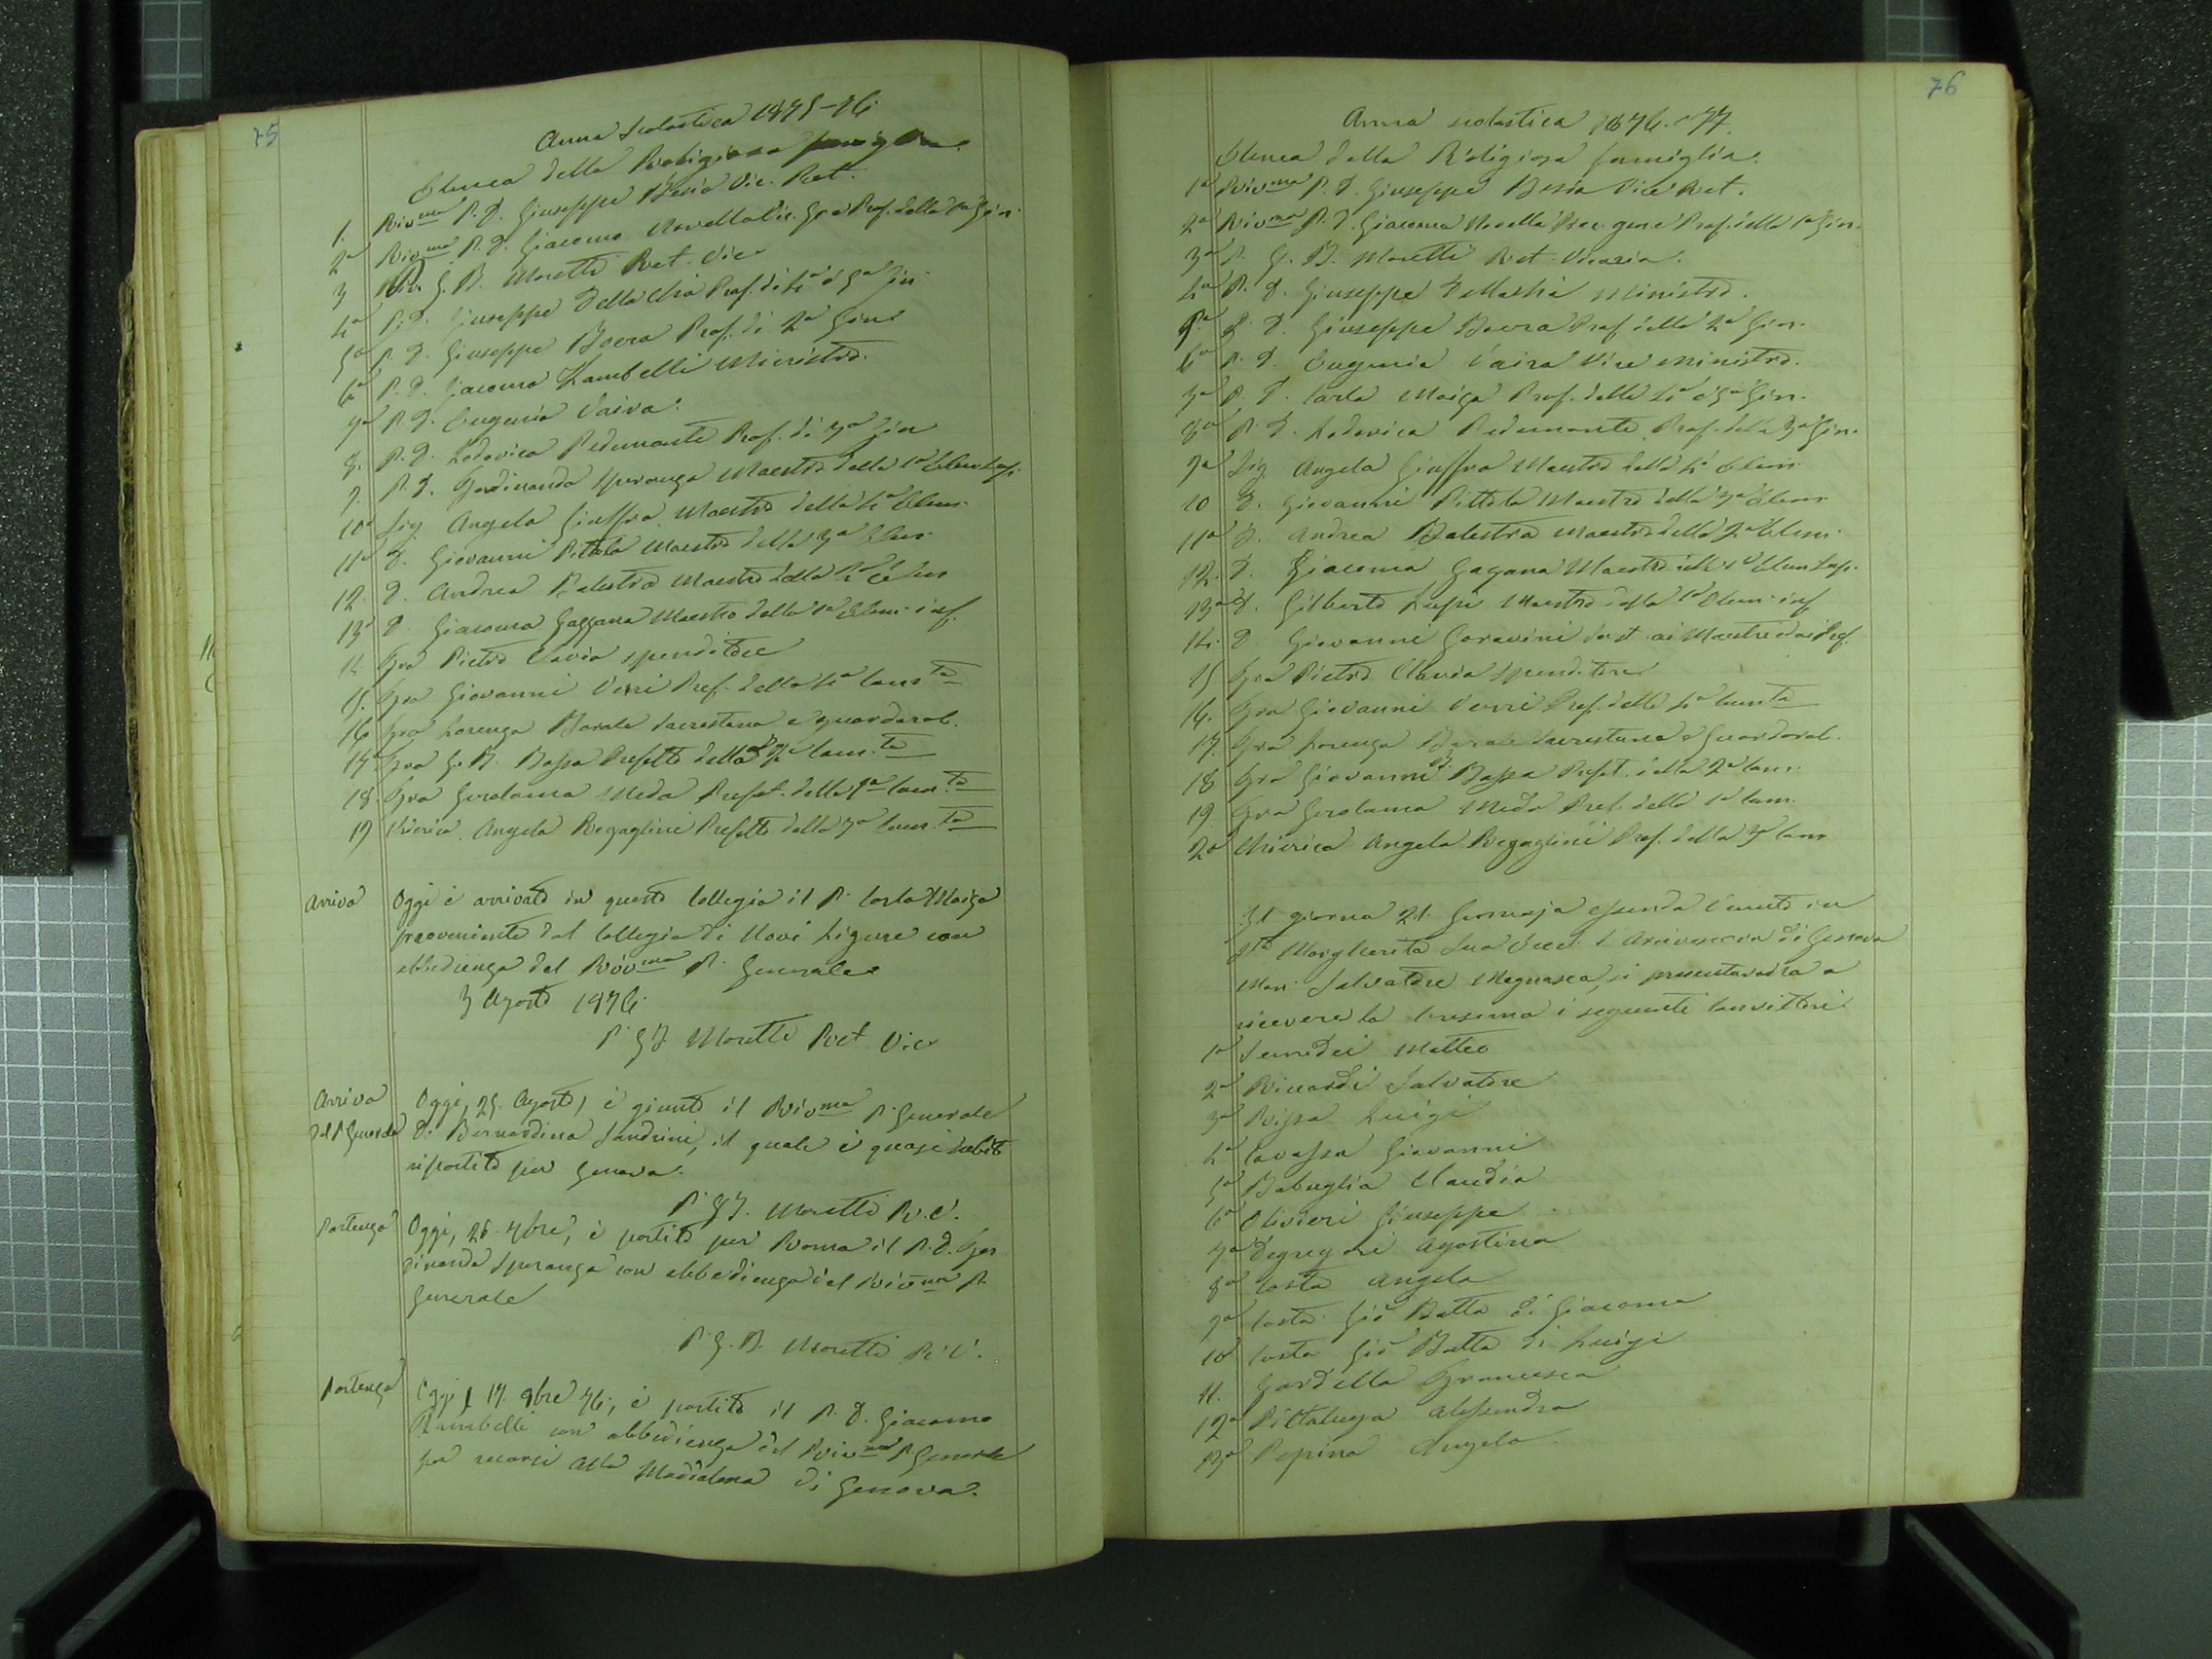 75
Anno Scolastico 1875-76
Elenco della Religiosa famiglia
1. Rev.mo P. D. Giuseppe Besio Vic. Ret.
2o Rev.mo P. D. Giacomo Novella Vic. Gen. Prof. della 1a Gin.
3 P. G. B. Moretti Ret. Vic.
4o P. D. Giuseppe Dellachà Prof. di 4a e 5a Gin.
5o P. D. Giuseppe Boera Prof. di 2a Gin.
6o P. D. Giacomo Zambelli Ministro.
7o P. D. Eugenio Vaira.
8. P. D. Lodovico Pedemonte Prof. di 3a Gin
9. P. D. Ferdinando Speranza Maestro della 1a Elem. Sup.
10o Sig. Angelo Giuffra Maestro della 4a Elem.
11o D. Giovanni Pittola Maestro della 3a Elem.
12. D. Andrea Balestra Maestro della 2a Elem
13o D. Giacomo Gaggana Maestro della 1a Elem. inf.
14 Fra Pietro Clavio spenditore
15. Fra Giovanni Verri Pref. della 4a Cam.ta
16 Fra Lorenzo Barale Sacrestano e guardarob.
17. Fra G. B. Bassa Prefetto della 2a Cam.ta
18. Fra Gerolamo Meda Prefet. della 1a Cam.ta
19 Chierico Angelo Regaglini Prefetto della 3a Cam.ta
Arrivo Oggi è arrivato in questo Collegio il P. Carlo Moiza
proveniente dal Collegio di Novi Ligure con
obbedienza del Rev.mo P. Generale
3 Agosto 1876.
P. G B Moretti Ret Vic
Arrivo del P Generale Oggi, 25. Agosto, è giunto il Rev.mo P. Generale
D. Bernardino Sandrini, il quale è quasi subito
ripartito per Genova.
P. G B. Moretti R. V.
Partenza Oggi, 26. 7bre, è partito per Roma il P. D. Fer
dinando Speranza con obbedienza del Rev.mo P.
Generale
P. G. B. Moretti R. V.
Partenza Oggi, 17. 9bre 76, è partito il P. D. Giacomo
Zambelli con obbedienza del Rev.mo P. Generale
per recarsi alla Maddalena di Genova.
76
Anno scolastico 1876-77.
Elenco della Religiosa famiglia.
1o Rev.mo P. D. Giuseppe Besio Vice Ret.
2o Rev.mo P. D. Giacomo Novella Vic. gen. e Prof. della 1a Gin.
3o P. G. B. Moretti Ret. Vicario.
4o P. D. Giuseppe Dellachà Ministro.
5o P. D. Giuseppe Boera Prof. della 2a Gin.
6o P. D. Eugenio Vaira Vice Ministro.
7o P. D. Carlo Moiza Prof. della 4a e 5a Gin.
8o P. D. Lodovico Pedemonte Prof. della 3a Gin.
9o Sig. Angelo Giuffra Maestro della 4a Elem.
10 D. Giovanni Pittola Maestro della 3a Elem.
11o D. Andrea Balestra Maestro della 2a Elem.
12. D. Giacomo Gagana Maestro della 1a Elem. Sup.
13o D. Gilberto Maestro della 1a Elem. inf
14. D. Giovanni Goravini Sost. ai Maestri e ai Pref.
15 Fra Pietro Clavio Spenditore
16. Fra Giovanni Verri Pref. della 4a Cam.ta
17. Fra Lorenzo Barale Sacrestano e Guardarob.
18 Fra Giovanni B. Bassa Prefet. della 2a Cam.
19 Fra Gerolamo Meda Pref. della 1a Cam.
20 Chierico Angelo Regaglini Pref. della 3a Cam
Il giorno 21 Gennajo essendo venuto in
S.ta Margherita Sua Ecc. l'Arcivescovo di Genova
Mon. Salvatore Magnasco, si presentavano a
ricevere la Cresima i seguenti Convittori
1o Semidei Matteo
2o Riccardi Salvatore
3o Rissa Luigi
4o Cavassa Giovanni
5o Babuglia Claudio
6o Olivieri Giuseppe
7o Degregori Agostino
8o Costa Angelo
9o Costa Gio Batta di Giacomo
10 Costa Gio Batta di Luigi
11. Gardella Francesco
12o Pittaluga Alessandro
13o Pepino Angelo.